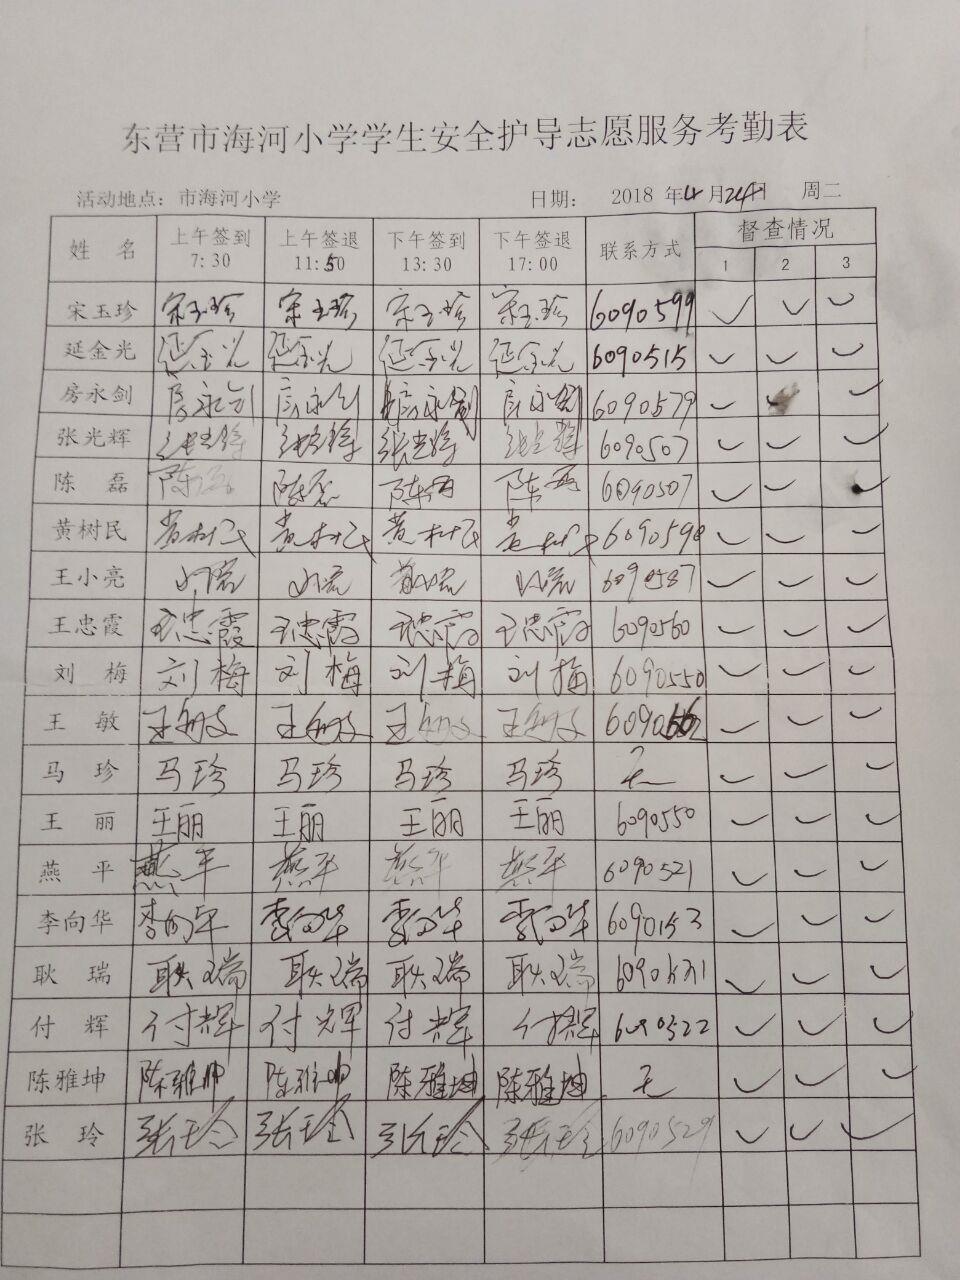 东营市海河小学学生安全护导志愿服务考勤表
活动地点：市海河小学 日期： 2018 年 4 月 24 日 周二
姓 名 上午签到 7:30 上午签退 11:50 下午签到 13:30 下午签退 17:00 联系方式 督查情况 1 2 3
宋玉珍 宋玉珍 宋玉珍 宋玉珍 宋玉珍 6090599 ✓ ✓ ✓
延金光 延金光 延金光 延金光 延金光 6090515 ✓ ✓ ✓
房永剑 房永剑 房永剑 房永剑 房永剑 6090579 ✓ ✓
张光辉 张光辉 张光辉 张光辉 张光辉 6090507 ✓ ✓ ✓
陈 磊 陈磊 陈磊 陈磊 陈磊 6090507 ✓ ✓ ✓
黄树民 黄树民 黄树民 黄树民 黄树民 6090598 ✓ ✓ ✓
王小亮 6090587 ✓ ✓ ✓
王忠霞 王忠霞 王忠霞 王忠霞 王忠霞 6090560 ✓ ✓ ✓
刘 梅 刘梅 刘梅 刘梅 刘梅 6090550 ✓ ✓ ✓
王 敏 王敏 王敏 王敏 王敏 ✓ ✓ ✓
马 珍 马珍 马珍 马珍 马珍 无 ✓ ✓ ✓
王 丽 王丽 王丽 王丽 王丽 6090550 ✓ ✓ ✓
燕 平 燕平 燕平 燕平 燕平 6090521 ✓ ✓ ✓
李向华 李向华 李向华 李向华 李向华 6090153 ✓ ✓ ✓
耿 瑞 耿瑞 耿瑞 耿瑞 耿瑞 ✓ ✓ ✓
付 辉 付辉 付辉 付辉 付辉 6090522 ✓ ✓ ✓
陈雅坤 陈雅坤 陈雅坤 陈雅坤 陈雅坤 无 ✓ ✓ ✓
张 玲 张玲 张玲 张玲 张玲 6090529 ✓ ✓ ✓